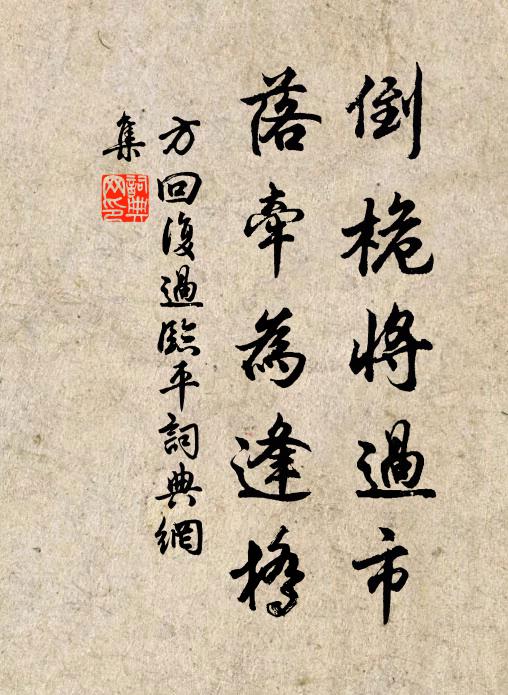 倒桅將過市
落牽為逢橋
方回復過臨平詞典網
集
詞典网印